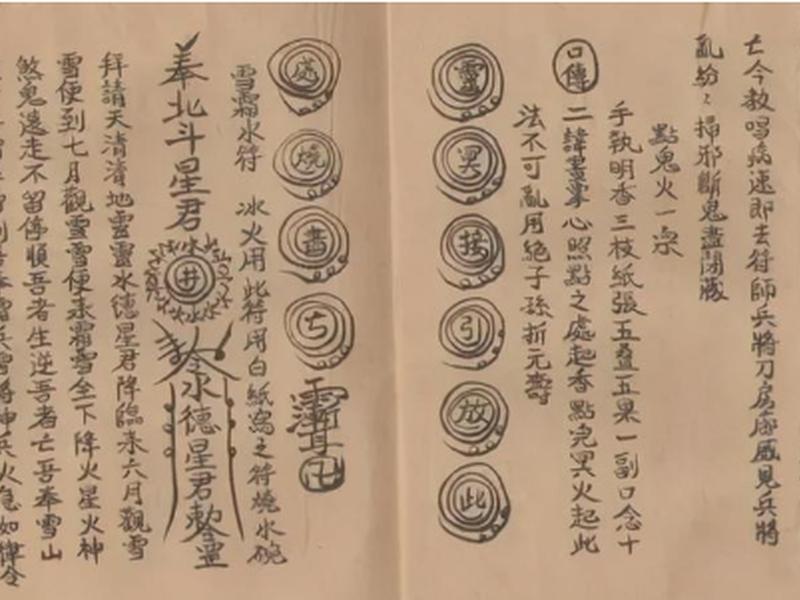 亡今教唱病速即去符師兵將刀房處威見兵將
亂紛〻掃邪斷鬼盡閉藏
點鬼火一宗
手執明香三枝紙張五盞五果一副口念十
二諱 心照點之處起香點完冥火起此
法不可亂用絕子孫折元壽
口傳
靈冥接引放此
處燒書
冰火用此符用白紙寫之符燒水碗
雪霜水符
奉北斗星君 井 令水德星君勅靈
拜請天清清地靈靈水德星君降臨來六月觀雪
雪便到七月觀雪雪便來霜雪坐下降火星火神
煞鬼遠走不留停順吾者生逆吾者亡吾奉雪山
神兵火急如律令